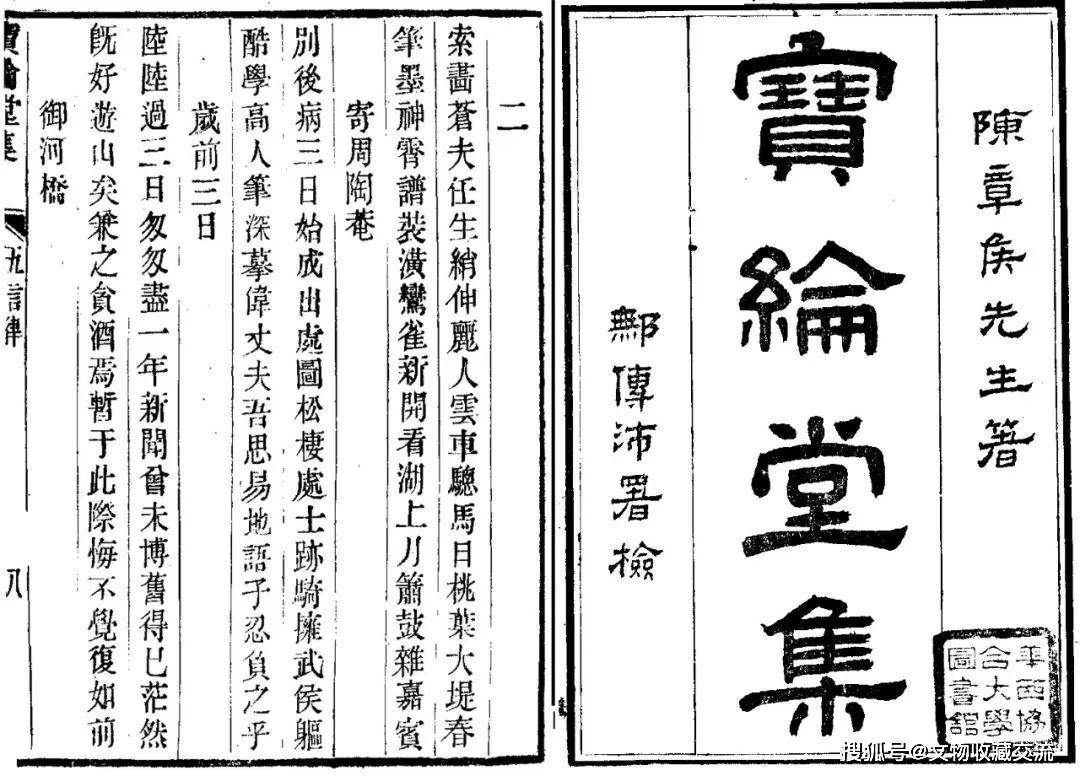 陳章侯先生著
寶綸堂集
鄦傳沛署檢
華西協
合大學
圖書館
二
索畫蒼夫任生綃伸麗人雲車驄馬日桃葉大堤春
筆墨神霄譜裝潢鸞雀新開看湖上月簫鼓雜嘉賓
寄周陶菴
別後病三日始成出處圖松棲處士跡騎擁武侯軀
酷學高人筆深摹偉丈夫吾思易地語子忍負之乎
歲前三日
陸陸過三日匆匆盡一年新聞曾未博舊得已茫然
旣好遊山矣兼之貪酒焉暫于此際悔不覺復如前
御河橋
寶綸堂集 五言律 八
搜狐号@文物收藏交流